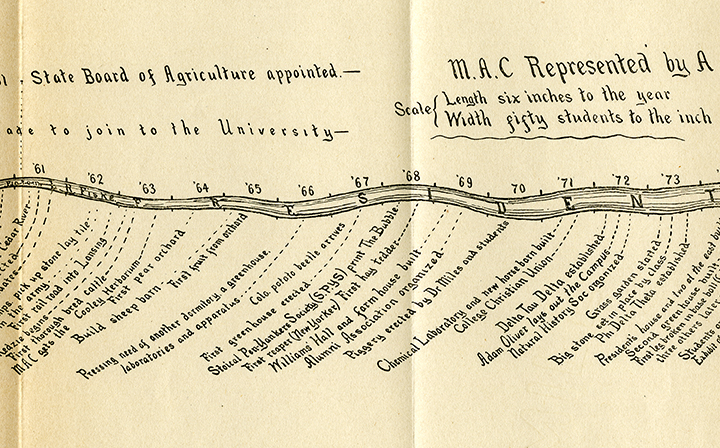 State Board of Agriculture appointed.—
M.A.C Represented by A
Scale { Length six inches to the year
Width fifty students to the inch
ade to join to the University—
'61 '62 '63 '64 '65 '66 '67 '68 '69 70 '71 '72 '73
L. R. Fiske P R E S I D E N T
Cedar River
pick up stone lay tile
army
First rail road into Lansing
begins
First through bred cattle
M.A.C gets the Cooley Herbarium
First pear orchard
Build sheep barn
First fruit from orchard
Pressing need of another dormitory, a greenhouse,
laboratories and apparatus
Colo. potato beetle arrives
First greenhouse erected
Stoical Pen Yankers Society (S.P.Y.S) print The Bubble
First reaper (New Yorker) First hay tedder
Williams Hall and farm house built
Alumni Association organized
Piggery erected by Dr Miles and students
Chemical Laboratory and new horse barn built
College Christian Union
Delta Tau Delta established
Adam Oliver lays out the Campus
Natural History Soc organized
Grass garden started
Big stone set in place by class
Phi Delta Theta established
Presidents house and two of the east
Second green house
First leg broken in base
three others
Students